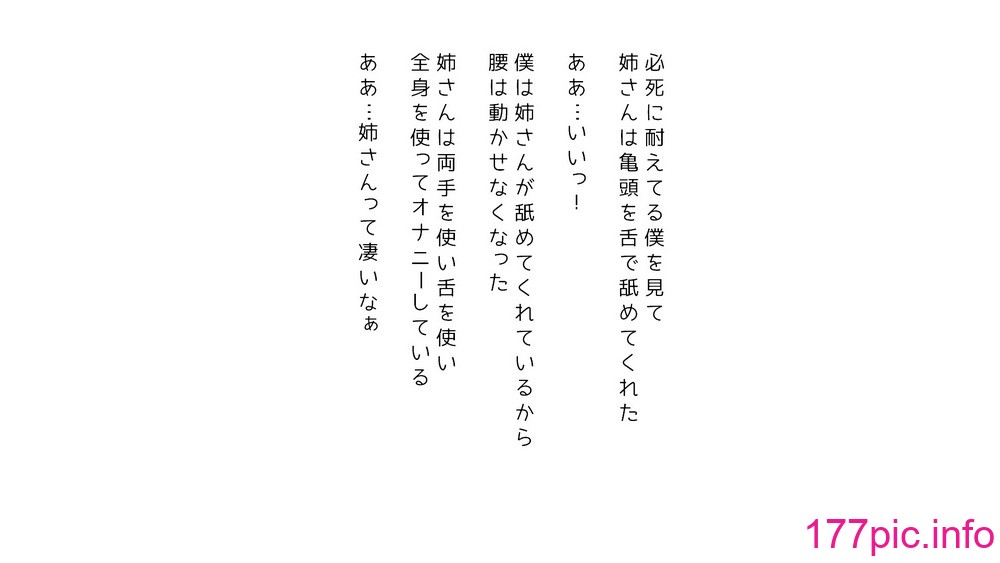 必死に耐えてる僕を見て
姉さんは亀頭を舌で舐めてくれた
ああ…いいっ！
僕は姉さんが舐めてくれているから
腰は動かせなくなった
姉さんは両手を使い舌を使い
全身を使ってオナニーしている
ああ…姉さんって凄いなぁ
177pic.info